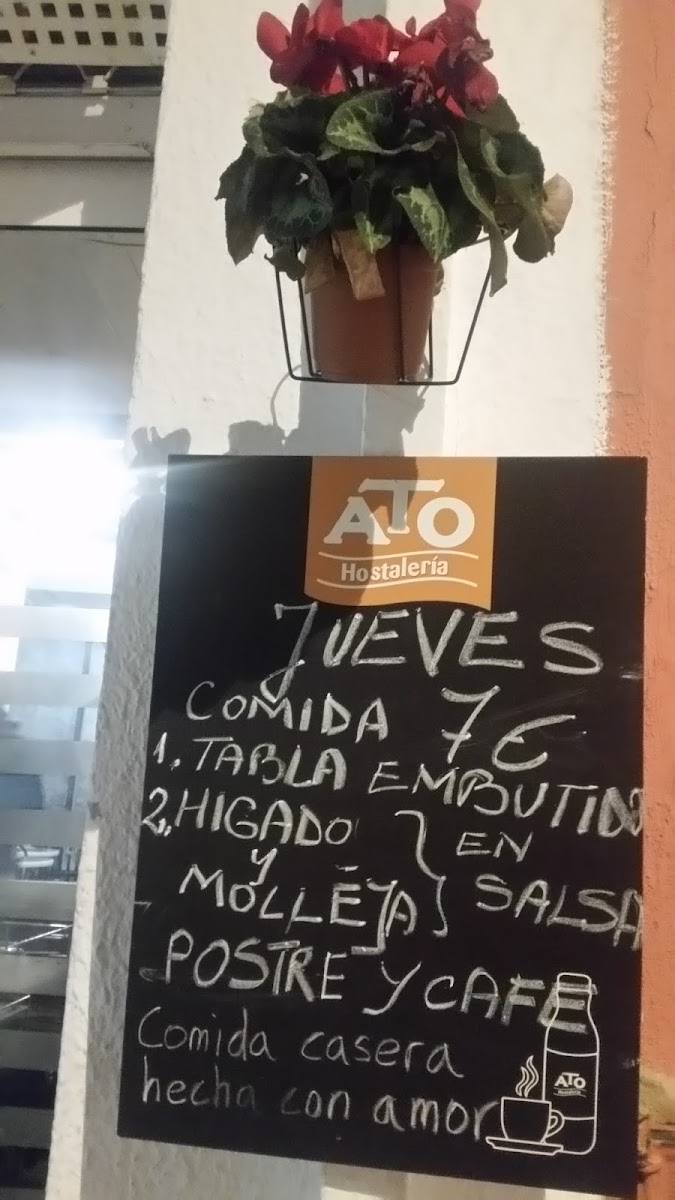 ATO
Hostalería
JUEVES
COMIDA 7€
1. TABLA EMBUTIDO
2. HIGADO
y
MOLLEJA
EN
SALSA
POSTRE Y CAFE
Comida casera
hecha con amor
ATO
Hostalería